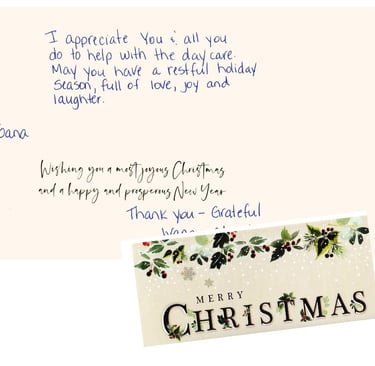 I appreciate You & all you
do to help with the day care.
May you have a restful holiday
season, full of love, joy and
laughter.
Wishing you a most joyous Christmas
and a happy and prosperous New Year
Thank you - Grateful
MERRY
CHRISTMAS